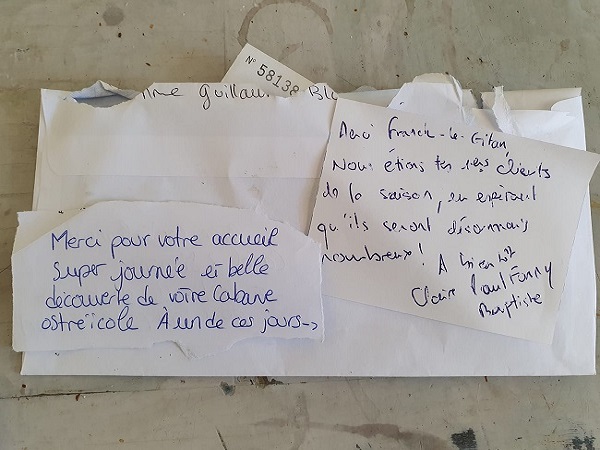 N° 58138
Mme Guillau
Merci Franck-le-Gitan
Nous étions tes 1ers clients
de la saison, en espérant
qu'ils seront désormais
nombreux!
A bientôt
Claire Paul Fanny
Baptiste
Merci pour votre accueil
Super journée et belle
découverte de votre Cabane
ostreïcole À un de ces jours